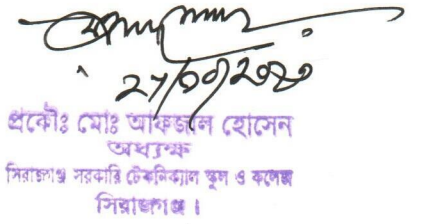 প্রকৌঃ মোঃ আফজাল হোসেন
অধ্যক্ষ
সিরাজগঞ্জ সরকারি টেকনিক্যাল স্কুল ও কলেজ
সিরাজগঞ্জ।